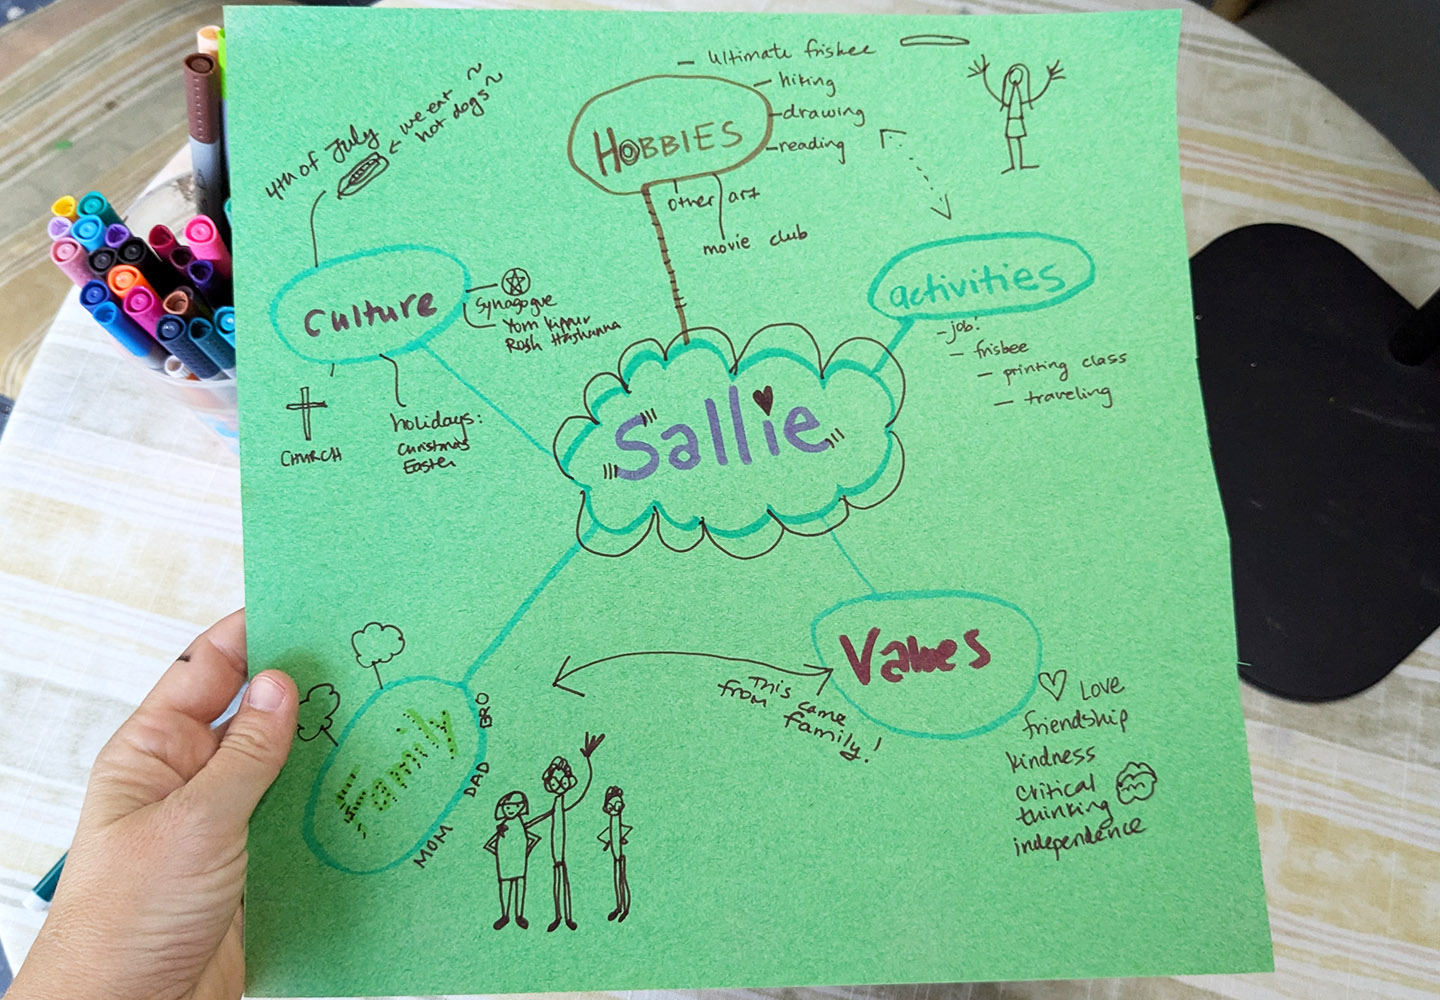 4th of July
we eat
hot dogs
Ultimate frisbee
hiking
drawing
reading
HOBBIES
other art
movie club
culture
synagogue
Yom Kippur
Rosh Hashanna
CHURCH
holidays:
Christmas
Easter
activities
- job!
- frisbee
- printing class
- traveling
Sallie
Values
This came
from family!
Love
friendship
kindness
critical
thinking
independence
Family
BRO
DAD
MOM